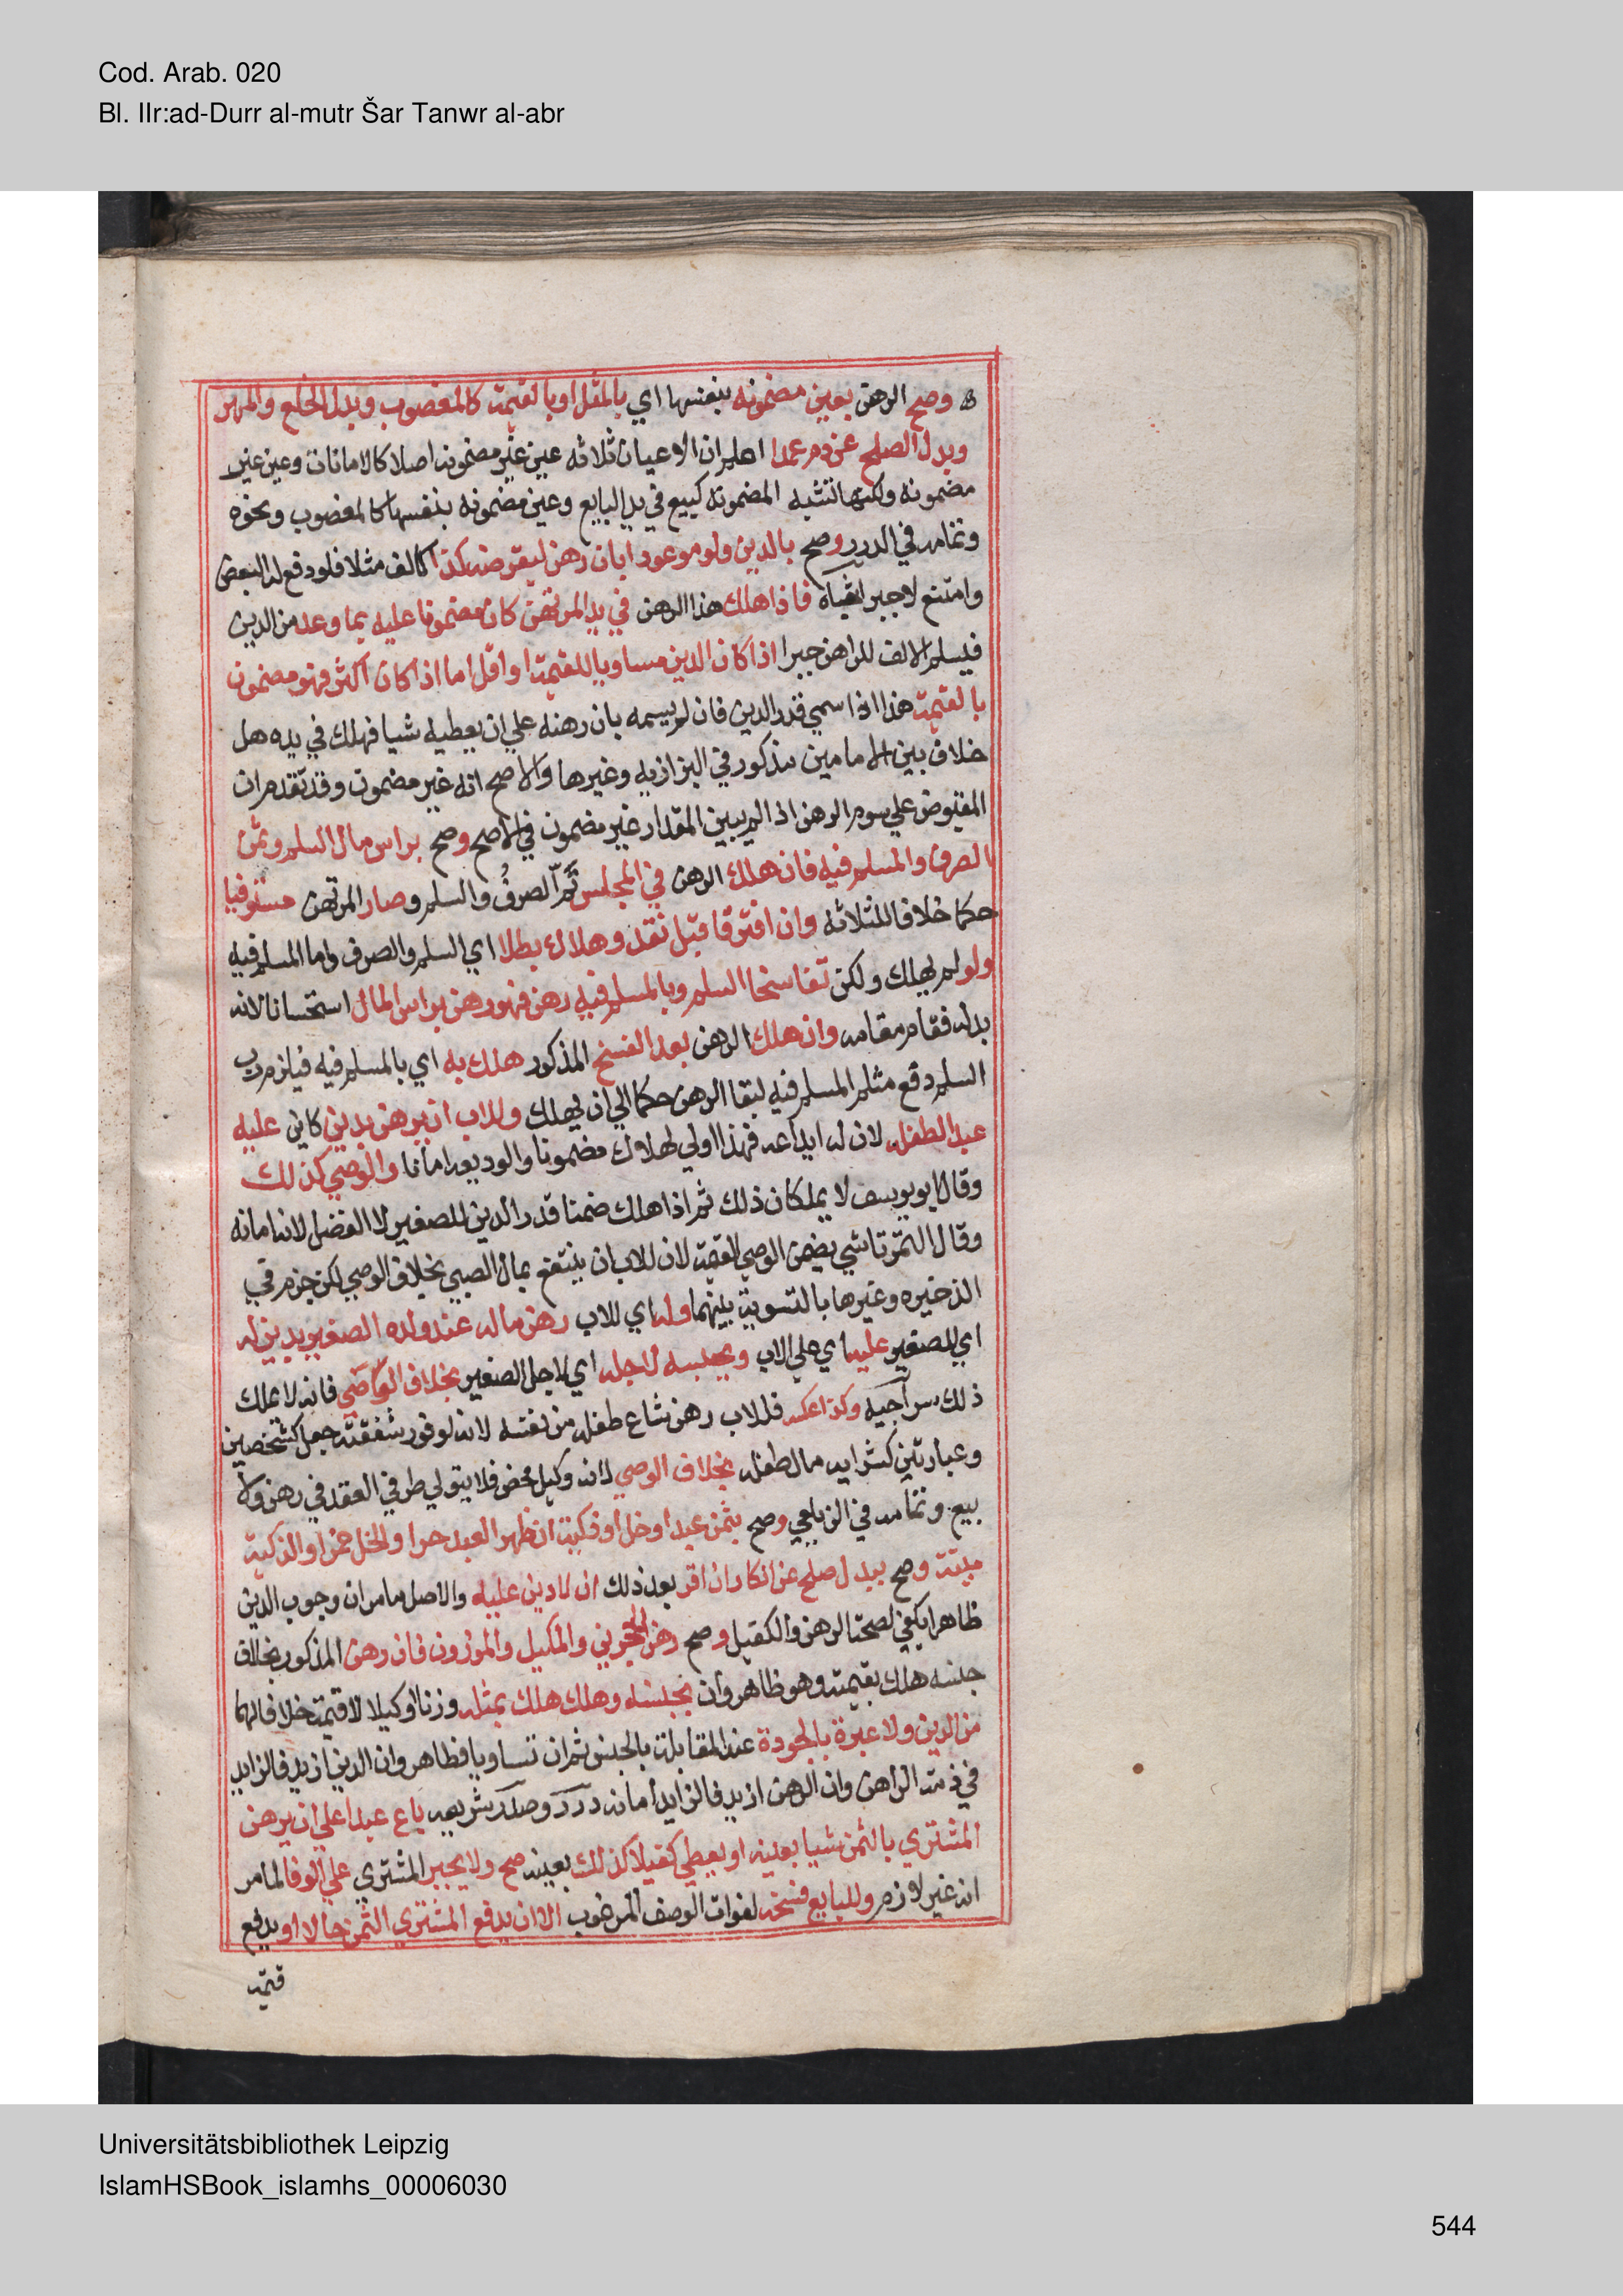 Cod. Arab. 020
Bl. IIr:ad-Durr al-mutr Šar Tanwr al-abr
وصح الرهن بعين مضمونه بنفسها اي بالمثل او بالقيمة كالمغصوب وبدل الخلع والمهر
وبدل الصلح عن دم عمد اعلم ان الاعيان ثلاثه عين غير مضمونه اصلا كالامانات وعين غير
مضمونه ولكنها تشبه المضمونه كبيع في يد البايع وعين مضمونه بنفسها كالمغصوب ونحوه
وتمامه في الدرر وصح بالدين ولو موعودا بان رهن ليقرضه كذا كالف مثلا فلو دفع له البعض
وامتنع لا جبر فاذا هلك هذا الرهن في يد المرتهن كان مضمونا عليه بما وعد من الدين
فيسلم الالف للراهن جبرا اذا كان الدين مساويا للقيمة او اقل اما اذا كان اكثر فهو مضمون
بالقيمة هذا اذا سمي قدر الدين فان لم يسمه بان رهنه علي ان يعطيه شيا فهلك في يده هل
خلاف بين الامامين مذكور في البزازيه وغيرها والاصح انه غير مضمون وقد تقدم ان
المقبوض علي سوم الرهن اذا لم يبين المقدار غير مضمون في الاصح وصح براس مال السلم وثمن
الصرف والمسلم فيه فان هلك الرهن في المجلس تم الصرف والسلم وصار المرتهن مستوفيا
حكما خلافا للثلاثه وان افترقا قبل نقد وهلاك بطلا اي السلم والصرف واما المسلم فيه
ولو لم يهلك ولكن تفاسخا السلم وبالمسلم فيه رهن فهو رهن براس المال استحسانا لانه
بدله فقام مقامه وان هلك الرهن بعد الفسخ المذكور هلك به اي بالمسلم فيه فيلزم رب
السلم دفع مثل المسلم فيه لبقا الرهن حكما الي ان يهلك وللاب ان يرهن بدين كاين عليه
عبد الطفله لان له ايداعه فهذا اولي لهلاك مضمونا والوديعه امانا والوصي كذلك
وقال ابو يوسف لا يملكان ذلك ثم اذا هلك ضمنا قدر الدين للصغير لا الفضل لانه امانه
وقال التمرتاشي يضمن الوصي القيمة لان للاب ان ينتفع بمال الصبي بخلاف الوصي لكن جزم في
الذخيره وغيرها بالتسوية بينهما وله اي للاب رهن ماله عند ولده الصغير بدين له
اي للصغير عليه اي علي الاب ويحبسه لاجله اي لاجل الصغير بخلاف الوصي فانه لا يملك
ذلك سراجيه وكذا عكسه فللاب رهن متاع طفله من نفسه لانه لوفور شفقته جعل كشخصين
وعبارتين كشرايه مال طفله بخلاف الوصي لانه وكيل محض فلا يتولي طرفي العقد في رهن ولا
بيع وتمامه في الزيلعي وصح بثمن عبد او خل او ذكية ان ظهر العبد حرا والخل خمرا والذكية
ميتة وصح ببدل صلح عن انكار ان اقر بعد ذلك ان لا دين عليه والاصل ما مر ان وجوب الدين
ظاهرا يكفي لصحة الرهن والكفيل وصح رهن الحجرين والمكيل والموزون فان رهن المذكور بخلاف
جنسه هلك بقيمته وهو ظاهر وان بجنسه وهلك هلك بمثله وزنا او كيلا لا قيمة خلافا لهما
من الدين ولا عبرة بالجودة عند المقابلة بالجنس ثم ان تساويا فظاهر وان الدين ازيد فالزايد
في ذمة الراهن وان الرهن ازيد فالزايد امانه درر وصدر شريعه باع عبدا علي ان يرهن
المشتري بالثمن شيا بعينه او يعطي كفيلا كذلك بعينه صح ولا يجبر المشتري علي الوفا لما مر
انه غير لازم وللبايع فسخه لفوات الوصف المرغوب الا ان يدفع المشتري الثمن حالا او يدفع
قيمة
Universitätsbibliothek Leipzig
IslamHSBook_islamhs_00006030
544